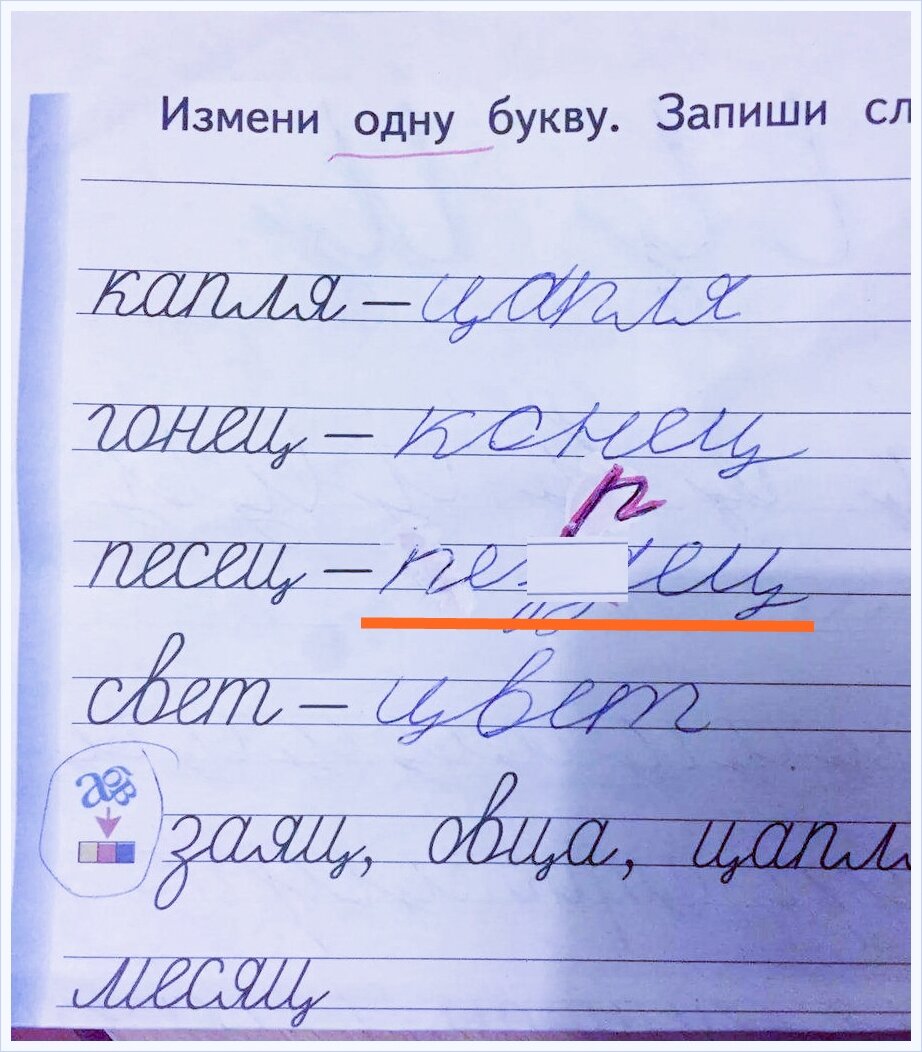 Измени одну букву. Запиши сл
капля – цапля
гонец – конец
р
песец – пе ец
свет – цвет
абв
заяц, овца, цапл
месяц